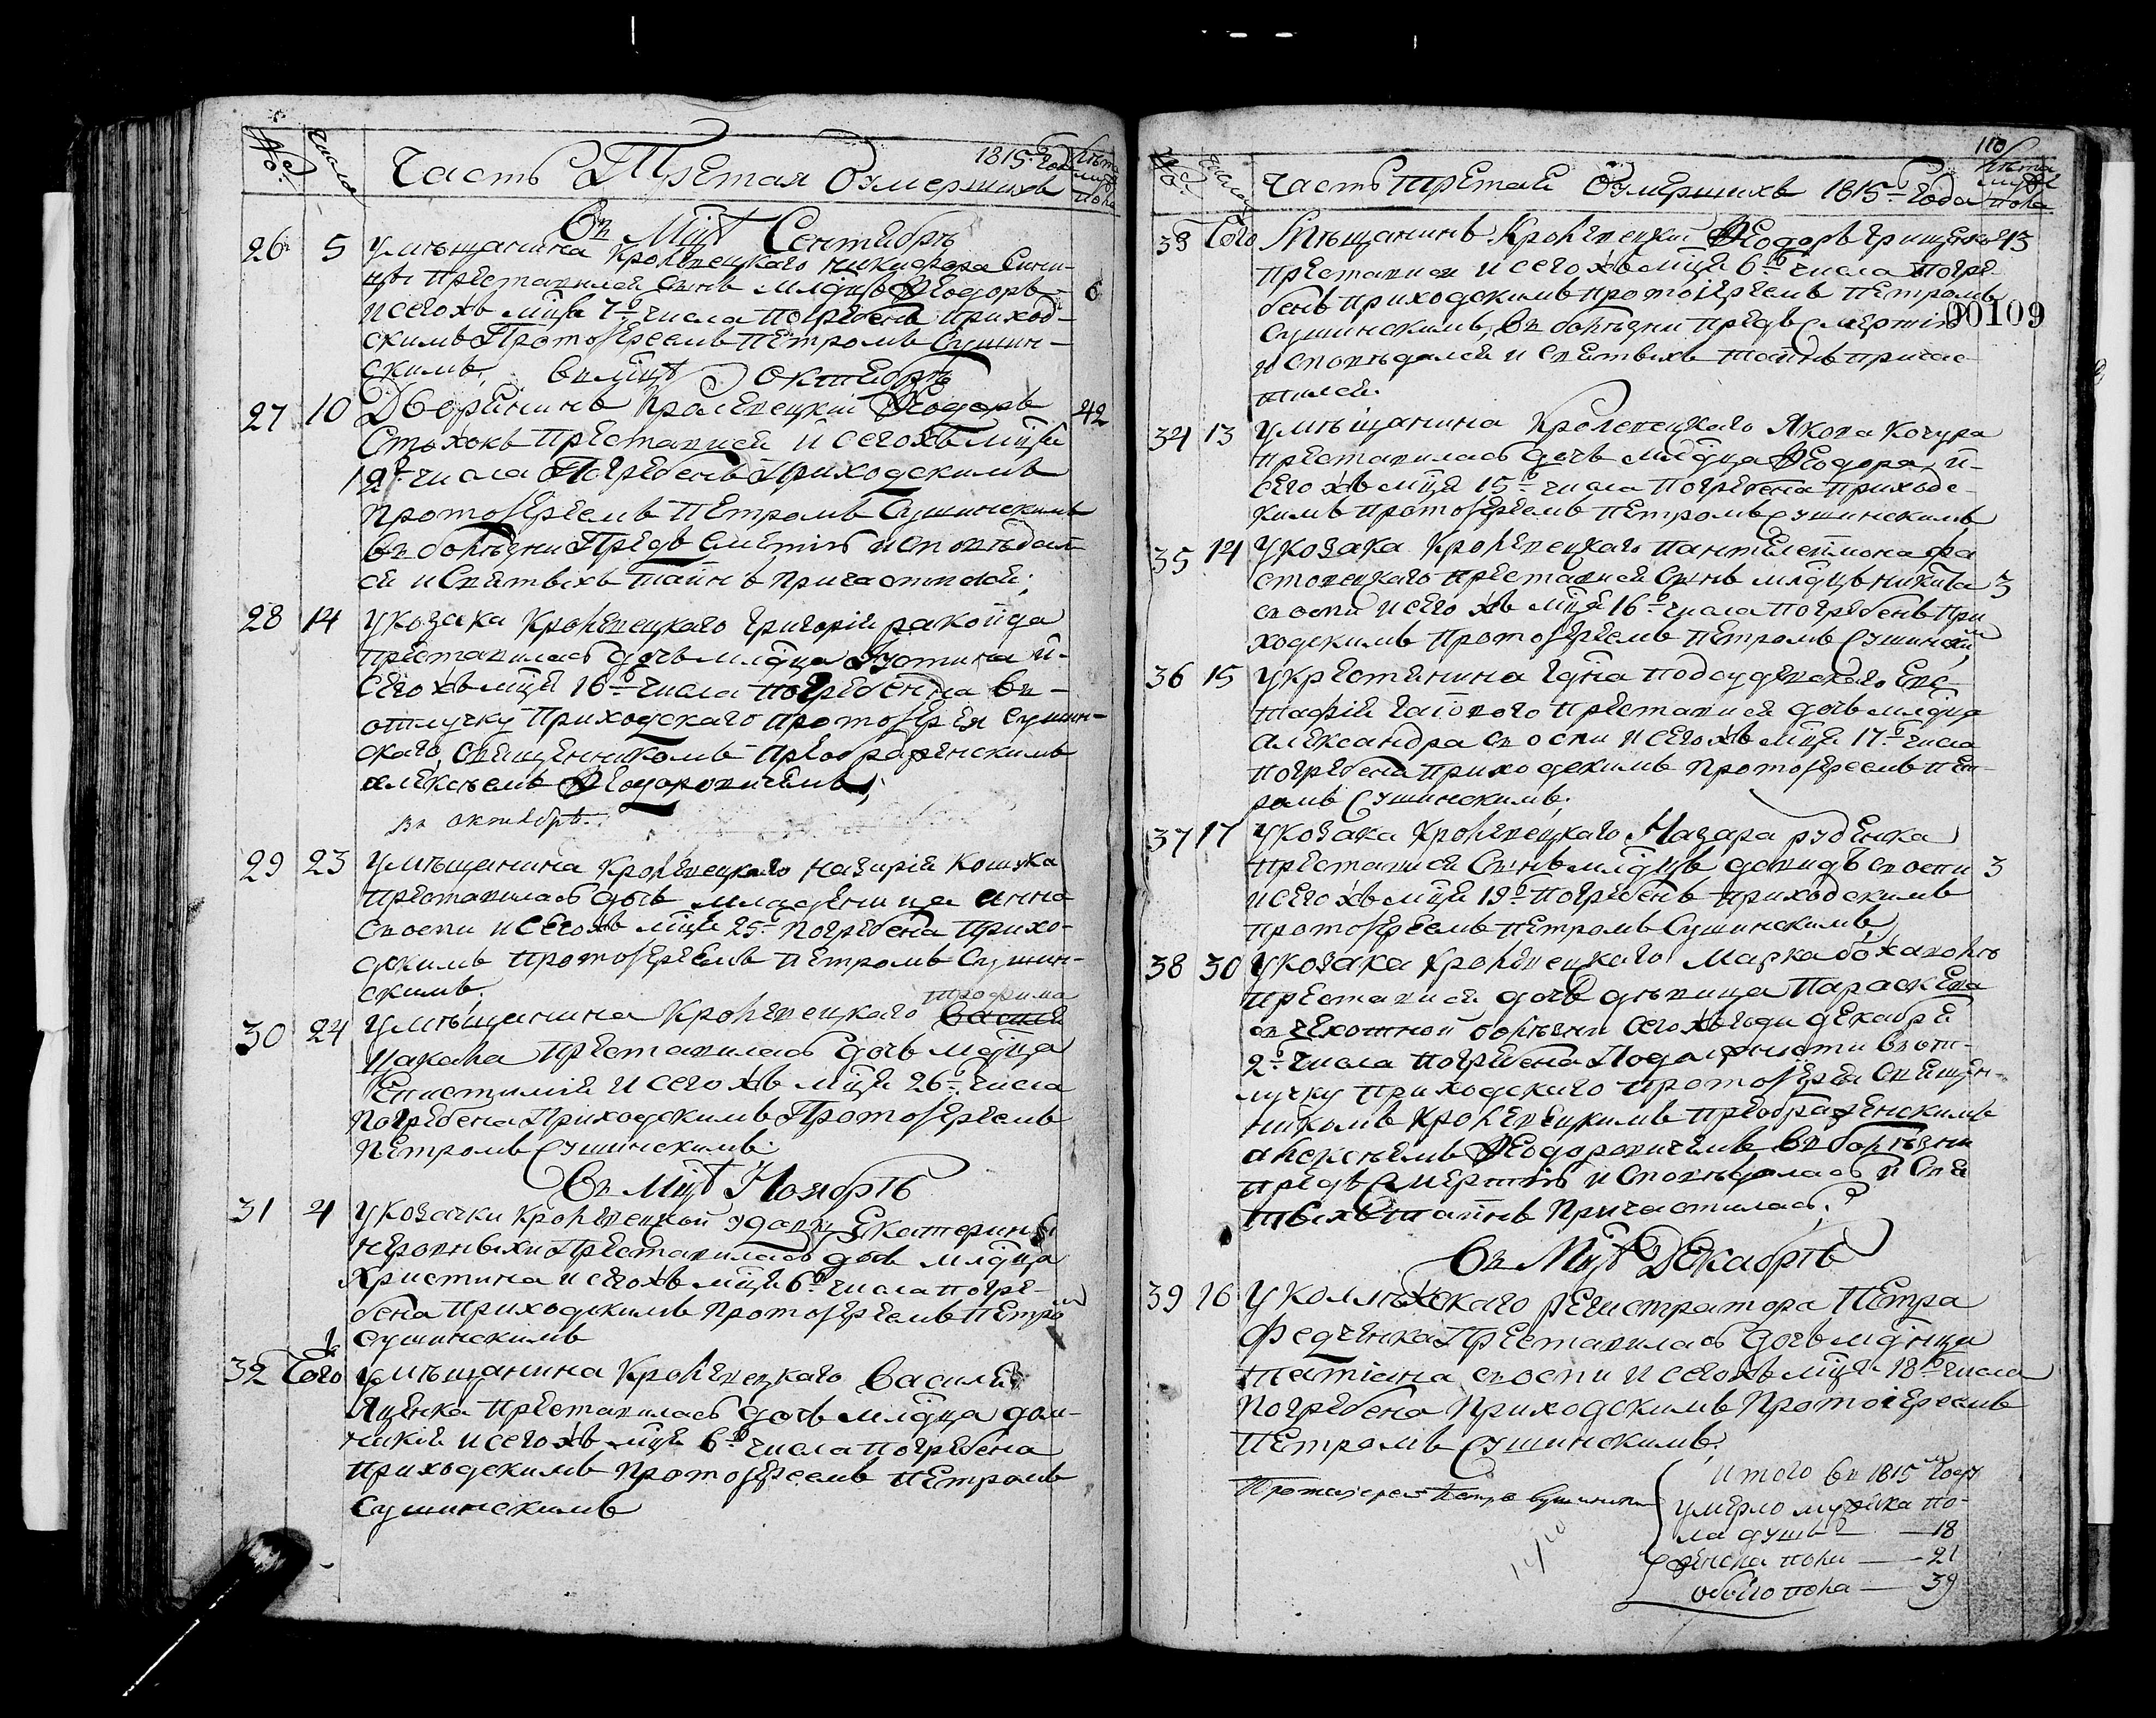 № Число Часть Третая Оумершихъ 1815: года Лѣта мужеска пола
Въ Мцѣ Сентябрѣ
26 5 У мѣщанина Кролевецкаго Никифора Сини-
цы преставился сынъ млдцъ Ѳеодоръ 6
и сего хъ мцѧ 7го числа погребенъ приход-
скимъ Протоіереемъ Петромъ Сушин-
скимъ, въ мцѣ Октябрѣ
27 10 Дворянинъ Кролевецкій Ѳеодоръ 42
Стожокъ преставися и сего хъ мцѧ
12 числа Погребенъ Приходскимъ
Протоіереемъ Петромъ Сушинскимъ
въ болѣзни Предъ Смертію исповѣдал-
ся и Святыхъ Таинъ причастился;
28 14 У козака Кролевецкаго Григорія ракоида
преставилась дочь млдца Іустина и
сего хъ мцѧ 16го числа погребенна въ
отлучку Приходскаго протоіерея Сушин-
скаго, Священникомъ Преображенскимъ
алексѣемъ Ѳеодоровичемъ;
въ октябрѣ.
29 23 У мѣщанина Кролевецкаго назирія Кошука
преставилась дочь младеница анна
съ оспи и сего хъ мцѧ 25 погребена Прихо-
дскимъ протоіереемъ Петромъ Сушин-
скимъ,
30 24 У мѣщанина Кролевецкаго трофима
преставилась дочь млдца
и сего хъ мцѧ 26го числа
погребена Приходскимъ Протоіереемъ
Петромъ Сушинскимъ.
Въ Мцѣ Ноябрѣ
31 4 У козачки Кролевецкой вдавы Екатерины
преставилась дочь млдца
Христина и сего хъ мцѧ 6го числа погре-
бена приходскимъ протоіереемъ Петромъ
Сушинскимъ
32 Того У мѣщанина Кролевецкаго Василія
Яценка преставилась дочь млдца дом-
никія и сего хъ мцѧ 6го числа погребена
приходскимъ протоіереемъ Петромъ
Сушинскимъ
110
№ Число Часть Третая Оумершихъ 1815 года Лѣта мужеска пола
33 Того Мѣщанинъ Кролевецкій Ѳеодоръ Грищенко 43
преставися и сего хъ мцѧ 6го числа погре-
бенъ приходскимъ протоіереемъ Петромъ
00109
Сушинскимъ, въ болѣзни предъ Смертію
исповѣдался и святыхъ таинъ причас-
тился.
34 13 У мѣщанина Кролевецкаго Якова Кочура
преставилась дочь млдца Ѳеодора, и
сего хъ мцѧ 15го числа погребена приходс-
кимъ протоіереемъ Петромъ Сушинскимъ
35 14 У козака Кролевецкаго пантелеимона фа
стовецкаго преставися сынъ млдцъ никита 3
съ оспи и сего хъ мцѧ 16го числа погребенъ при
ходскимъ протоіереемъ Петромъ Сушинскимъ
36 15 У крестянина гдна подсудевскаго Евс-
тафія преставися дочь млдца
александра съ оспи и сего хъ мцѧ 17го числа
погребена приходскимъ протоіереемъ Пет-
ромъ Сушинскимъ.
37 17 У козака Кролевецкаго Назара рубенка
преставися сынъ млдцъ давидъ съ оспи 3
и сего хъ мцѧ 19го погребенъ приходскимъ
протоіереемъ Петромъ Сушинскимъ,
38 30 У козака Кролевецкаго Марка
преставися дочь дѣвица Параскева
въ чехотной болѣзни сего хъ года декабря
2го числа погребена въ от-
лучку приходского протоіерея Священ-
никомъ Кролевецкимъ преображенскимъ
алексѣемъ Ѳеодоровичемъ въ болѣзни
предъ Смертію исповѣдалась и Свя
тыхъ таинъ причастилась.
Въ Мцѣ Декабрѣ
39 16 У коллѣжскаго регистратора Петра
Федченка преставилась дочь млднца
Татіана съ оспи и сего хъ мцѧ 18го числа
погребена приходскимъ протоіереемъ
Петромъ Сушинскимъ.
Протоіерей Петръ Сушинскій
Итого въ 1815 году
умерло мужеска по-
ла душъ — 18
женска пола — 21
обоего пола — 39